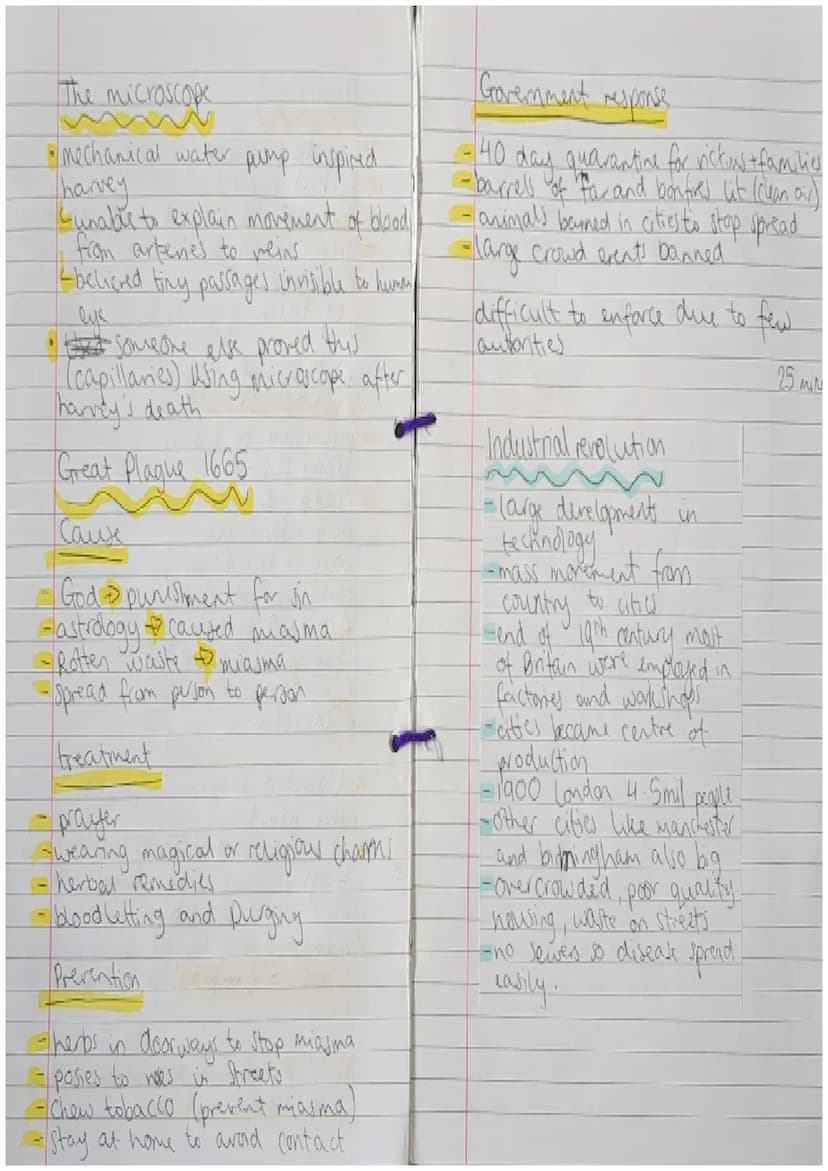 The microscope
• mechanical water pump inspired
harvey
↳ unable to explain movement of blood
from arteries to veins
↳ believed tiny passages invisible to human
eye
• someone else proved this
(capillaries) using microscope after
harvey's death
Great Plague 1665
Cause
- God → punishment for sin
- astrology → caused miasma
- Rotten waste → miasma
- spread from person to person
treatment
- prayer
- wearing magical or religious charms
- herbal remedies
- bloodletting and purging
Prevention
- herbs in doorways to stop miasma
- posies to in streets
- chew tobacco (prevent miasma)
- stay at home to avoid contact
Government response
- 40 day quarantine for victims + families
- barrels of tar and bonfires lit (clean air)
- animals banned in cities to stop spread
- large crowd events banned
difficult to enforce due to few
autorities
25 min
Industrial revolution
- large developments in
technology
- mass movement from
country to cities
- end of 19th century most
of Britain were employed in
factories and workshops
- cities became centre of
production
- 1900 London 4.5mil people
- other cities like manchester
and birmingham also big
- overcrowded, poor quality
housing, waste on streets
- no sewers so disease spread
easily.